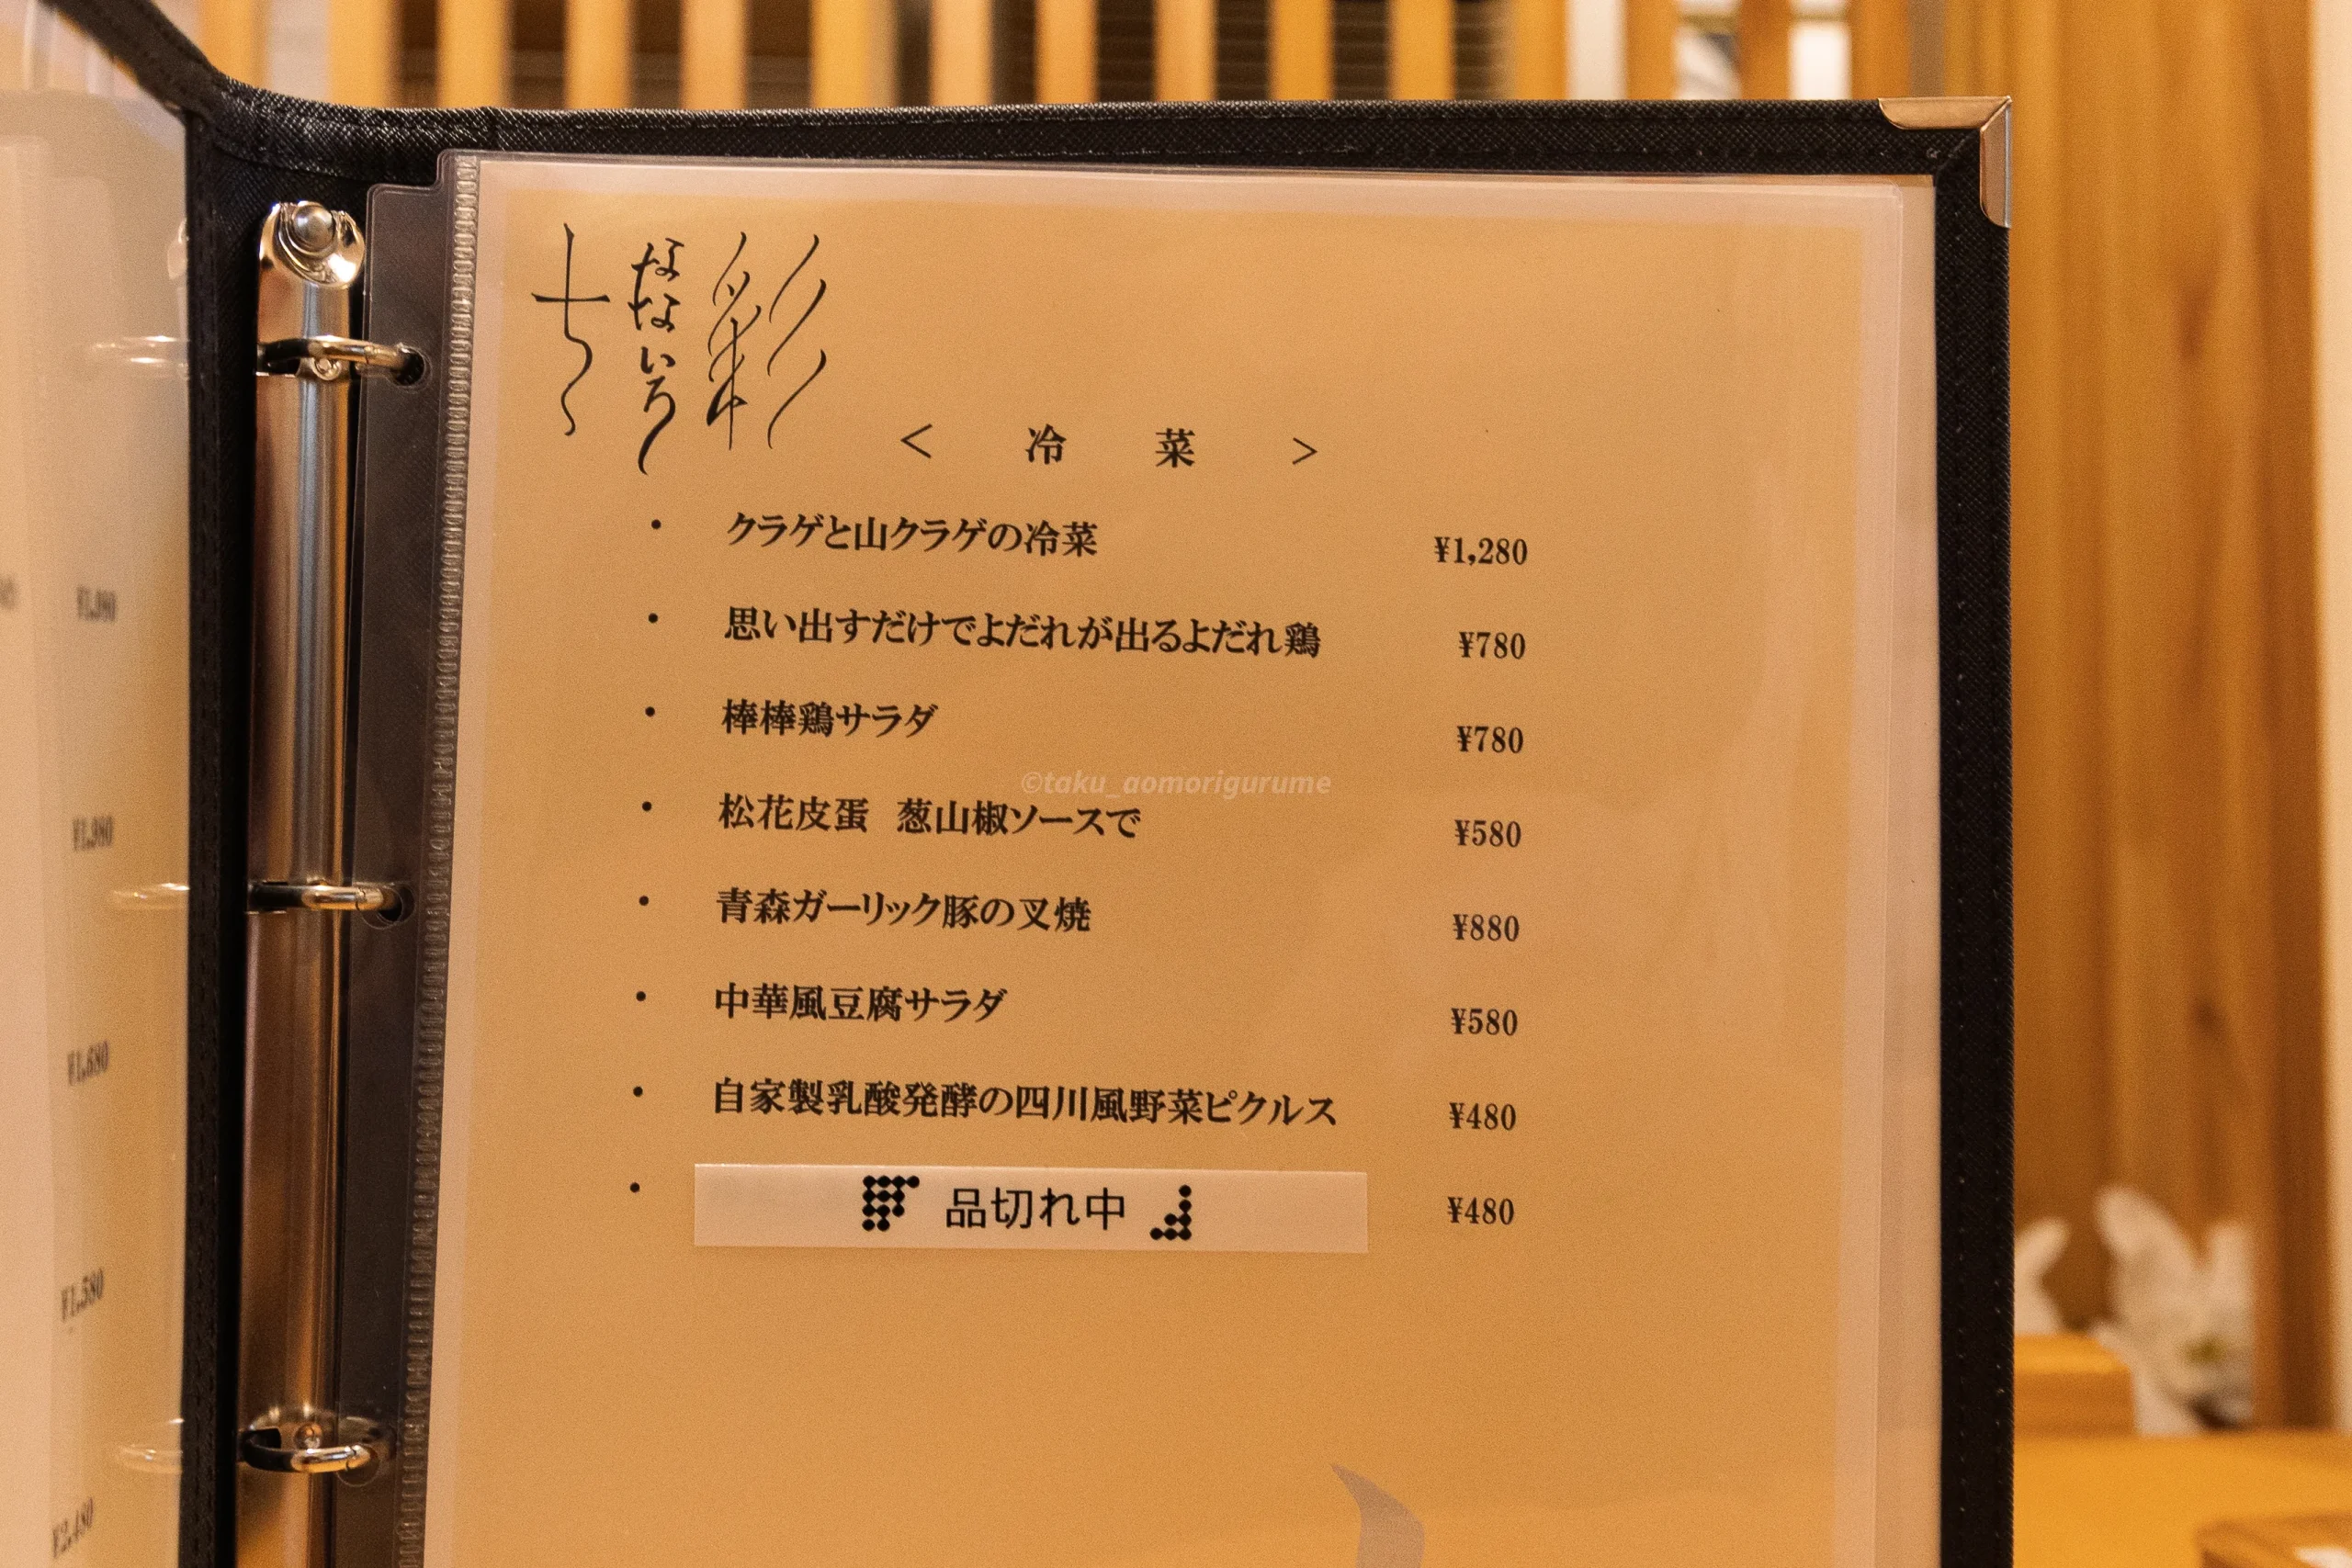 七彩
なないろ
< 冷 菜 >
・ クラゲと山クラゲの冷菜 ¥1,280
・ 思い出すだけでよだれが出るよだれ鶏 ¥780
・ 棒棒鶏サラダ ¥780
©taku_aomorigurume
・ 松花皮蛋 葱山椒ソースで ¥580
・ 青森ガーリック豚の叉焼 ¥880
・ 中華風豆腐サラダ ¥580
・ 自家製乳酸発酵の四川風野菜ピクルス ¥480
・ 品切れ中 ¥480
¥1,680
¥1,580
¥2,480